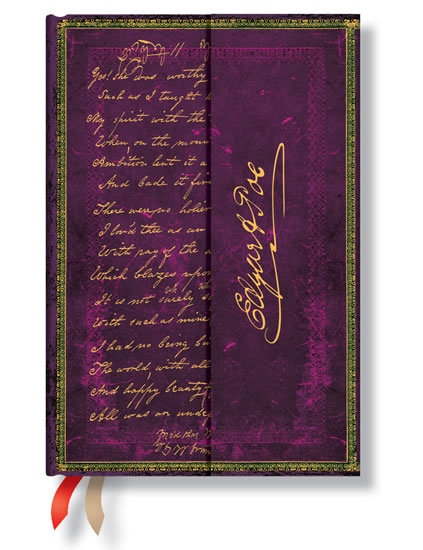 Yes! she was worthy
Such as I taught h
My spirit with the
When on the moun
Ambition lent it a
And bade it fir
There were no holier
I lov'd thee as an
With ray of the a
Which blazes upon
It is not surely s
With such as mine
I had no being bu
The world with all
And happy beauty
All was an unde
Mid that
Edgar A Poe